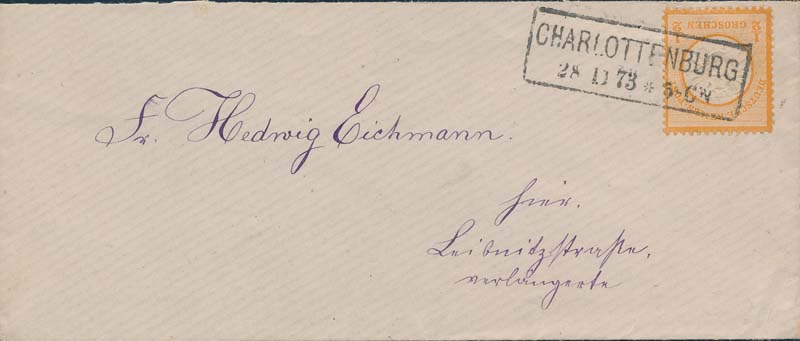 CHARLOTTENBURG
28 11 73 * 5-6N
1/2 GROSCHEN 1/2
Fr. Hedwig Eichmann.
hier.
Leibnitzstraße,
verlängerte